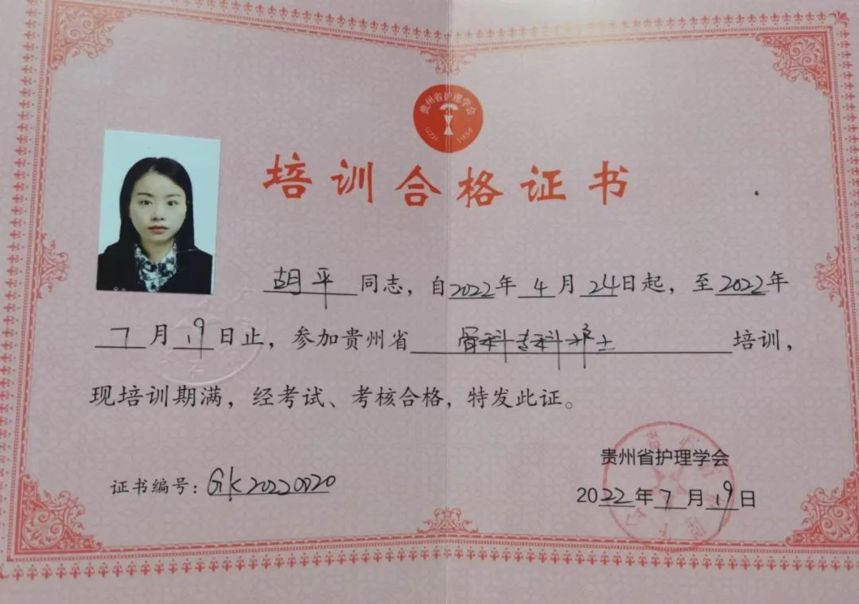 贵州省护理学会
GZNA 1934
培训合格证书
胡平同志，自2022年4月24日起，至2022年
7月19日止，参加贵州省骨科专科护士培训，
现培训期满，经考试、考核合格，特发此证。
贵州省护理学会
证书编号：GK20220020
2022年7月19日